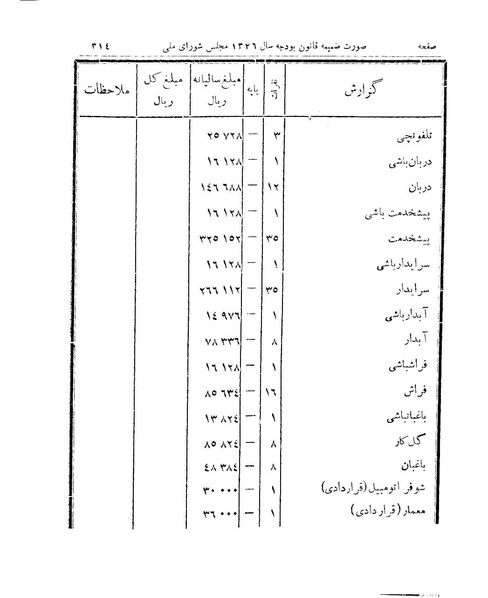 صفحه صورت ضمیمه قانون بودجه سال ۱۳۲۶ مجلس شورای ملی ۳۱٤
گزارش نفرات پایه مبلغ سالیانه ریال مبلغ کل ریال ملاحظات
تلفونچی ۳ — ۲۵ ۷۲۸
دربان‌باشی ۱ — ۱٦ ۱۲۸
دربان ۱۲ — ۱٤٦ ٦۸۸
پیشخدمت باشی ۱ — ۱٦ ۱۲۸
پیشخدمت ۳۵ — ۳۲۵ ۱۵۲
سرایدارباشی ۱ — ۱٦ ۱۲۸
سرایدار ۳۵ — ۲٦٦ ۱۱۲
آبدارباشی ۱ — ۱٤ ۹۷٦
آبدار ۸ — ۷۸ ۳۳٦
فراشباشی ۱ — ۱٦ ۱۲۸
فراش ۱٦ — ۸۵ ٦۳٤
باغبانباشی ۱ — ۱۳ ۸۲٤
گل‌کار ۸ — ۸۵ ۸۲٤
باغبان ۸ — ٤۸ ۳۸٤
شوفر اتومبیل (قراردادی) ۱ — ۳۰ ۰۰۰
معمار (قراردادی) ۱ — ۳٦ ۰۰۰